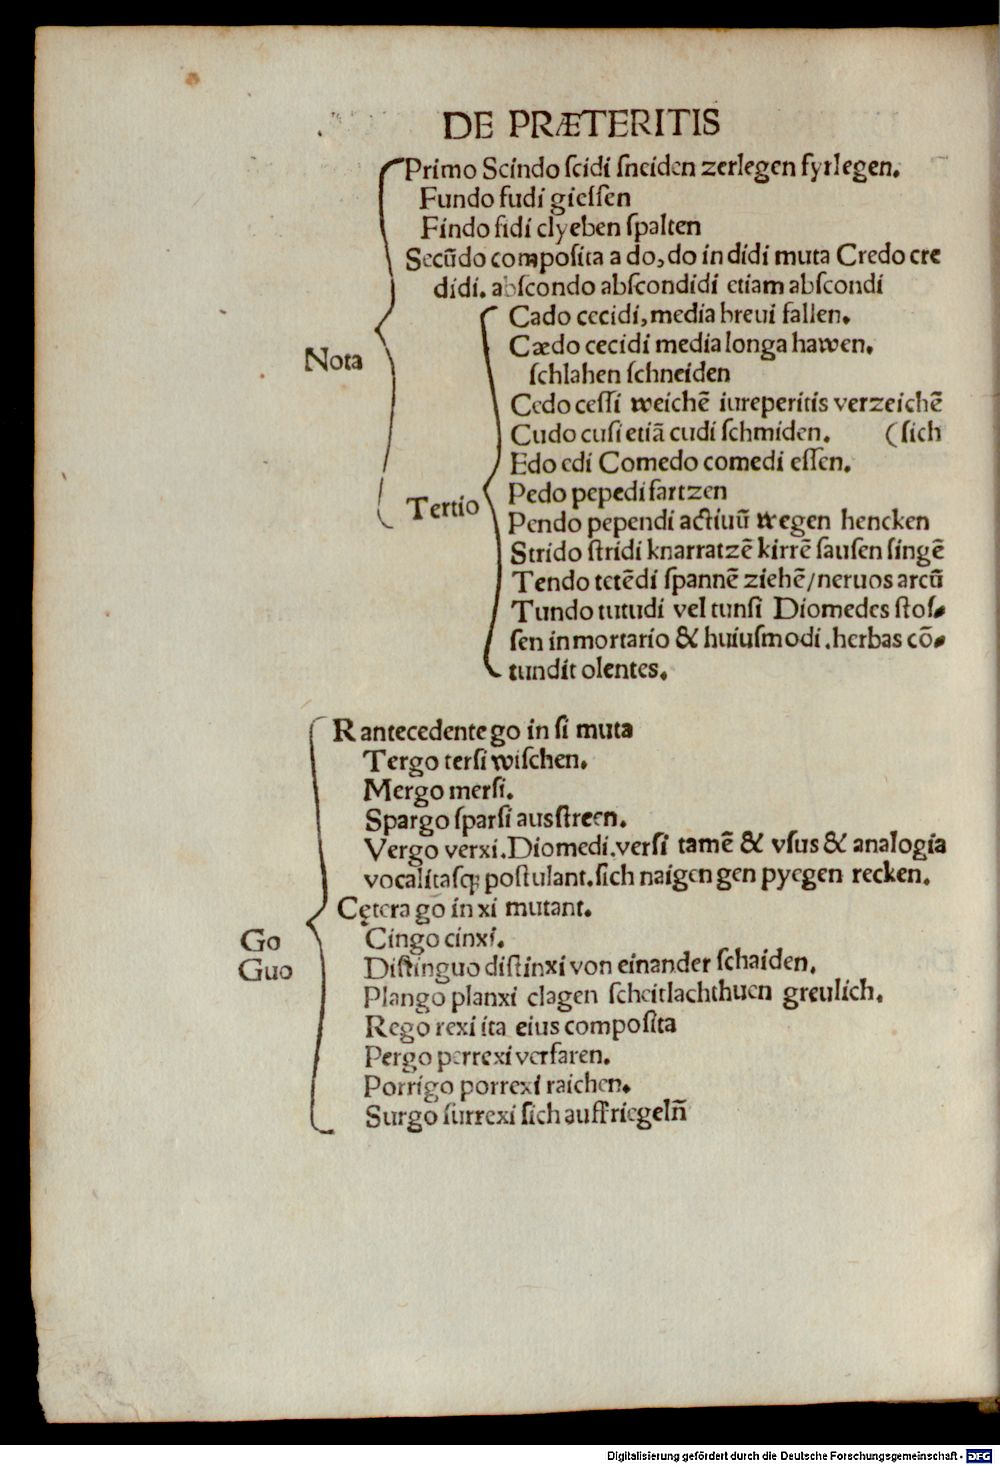 DE PRÆTERITIS
Primo Scindo ſcidi ſneiden zerlegen fyrlegen.
Fundo fudi gieſſen
Findo fidi clyeben ſpalten
Secūdo compoſita a do, do in didi muta Credo cre
didi. abſcondo abſcondidi etiam abſcondi
Cado cecidi, media breui fallen.
Nota
Cædo cecidi media longa hawen.
ſchlahen ſchneiden
Cedo ceſſi weichē iureperitis verzeichē
Cudo cuſi etiā cudi ſchmiden. (ſich
Edo edi Comedo comedi eſſen.
Pedo pepedi fartzen
Tertio
Pendo pependi actiuū wegen hencken
Strido ſtridi knarratzē kirrē ſauſen ſingē
Tendo tetēdi ſpannē ziehē/neruos arcū
Tundo tutudi vel tunſi Diomedes ſtoſ⸗
ſen in mortario & huiuſmodi. herbas cō⸗
tundit olentes.
R antecedente go in ſi muta
Tergo terſi wiſchen.
Mergo merſi.
Spargo ſparſi ausſtreen.
Vergo verxi. Diomedi. verſi tamē & vſus & analogia
vocalitaſꝗ poſtulant. ſich naigen gen pyegen recken.
Cętera go in xi mutant.
Go
Cingo cinxi.
Guo
Diſtinguo diſtinxi von einander ſchaiden.
Plango planxi clagen ſcheitlachthuen greulich.
Rego rexi ita eius compoſita
Pergo perrexi verfaren.
Porrigo porrexi raichen.
Surgo ſurrexi ſich auffriegeln̄
Digitalisierung gefördert durch die Deutsche Forschungsgemeinschaft - DFG